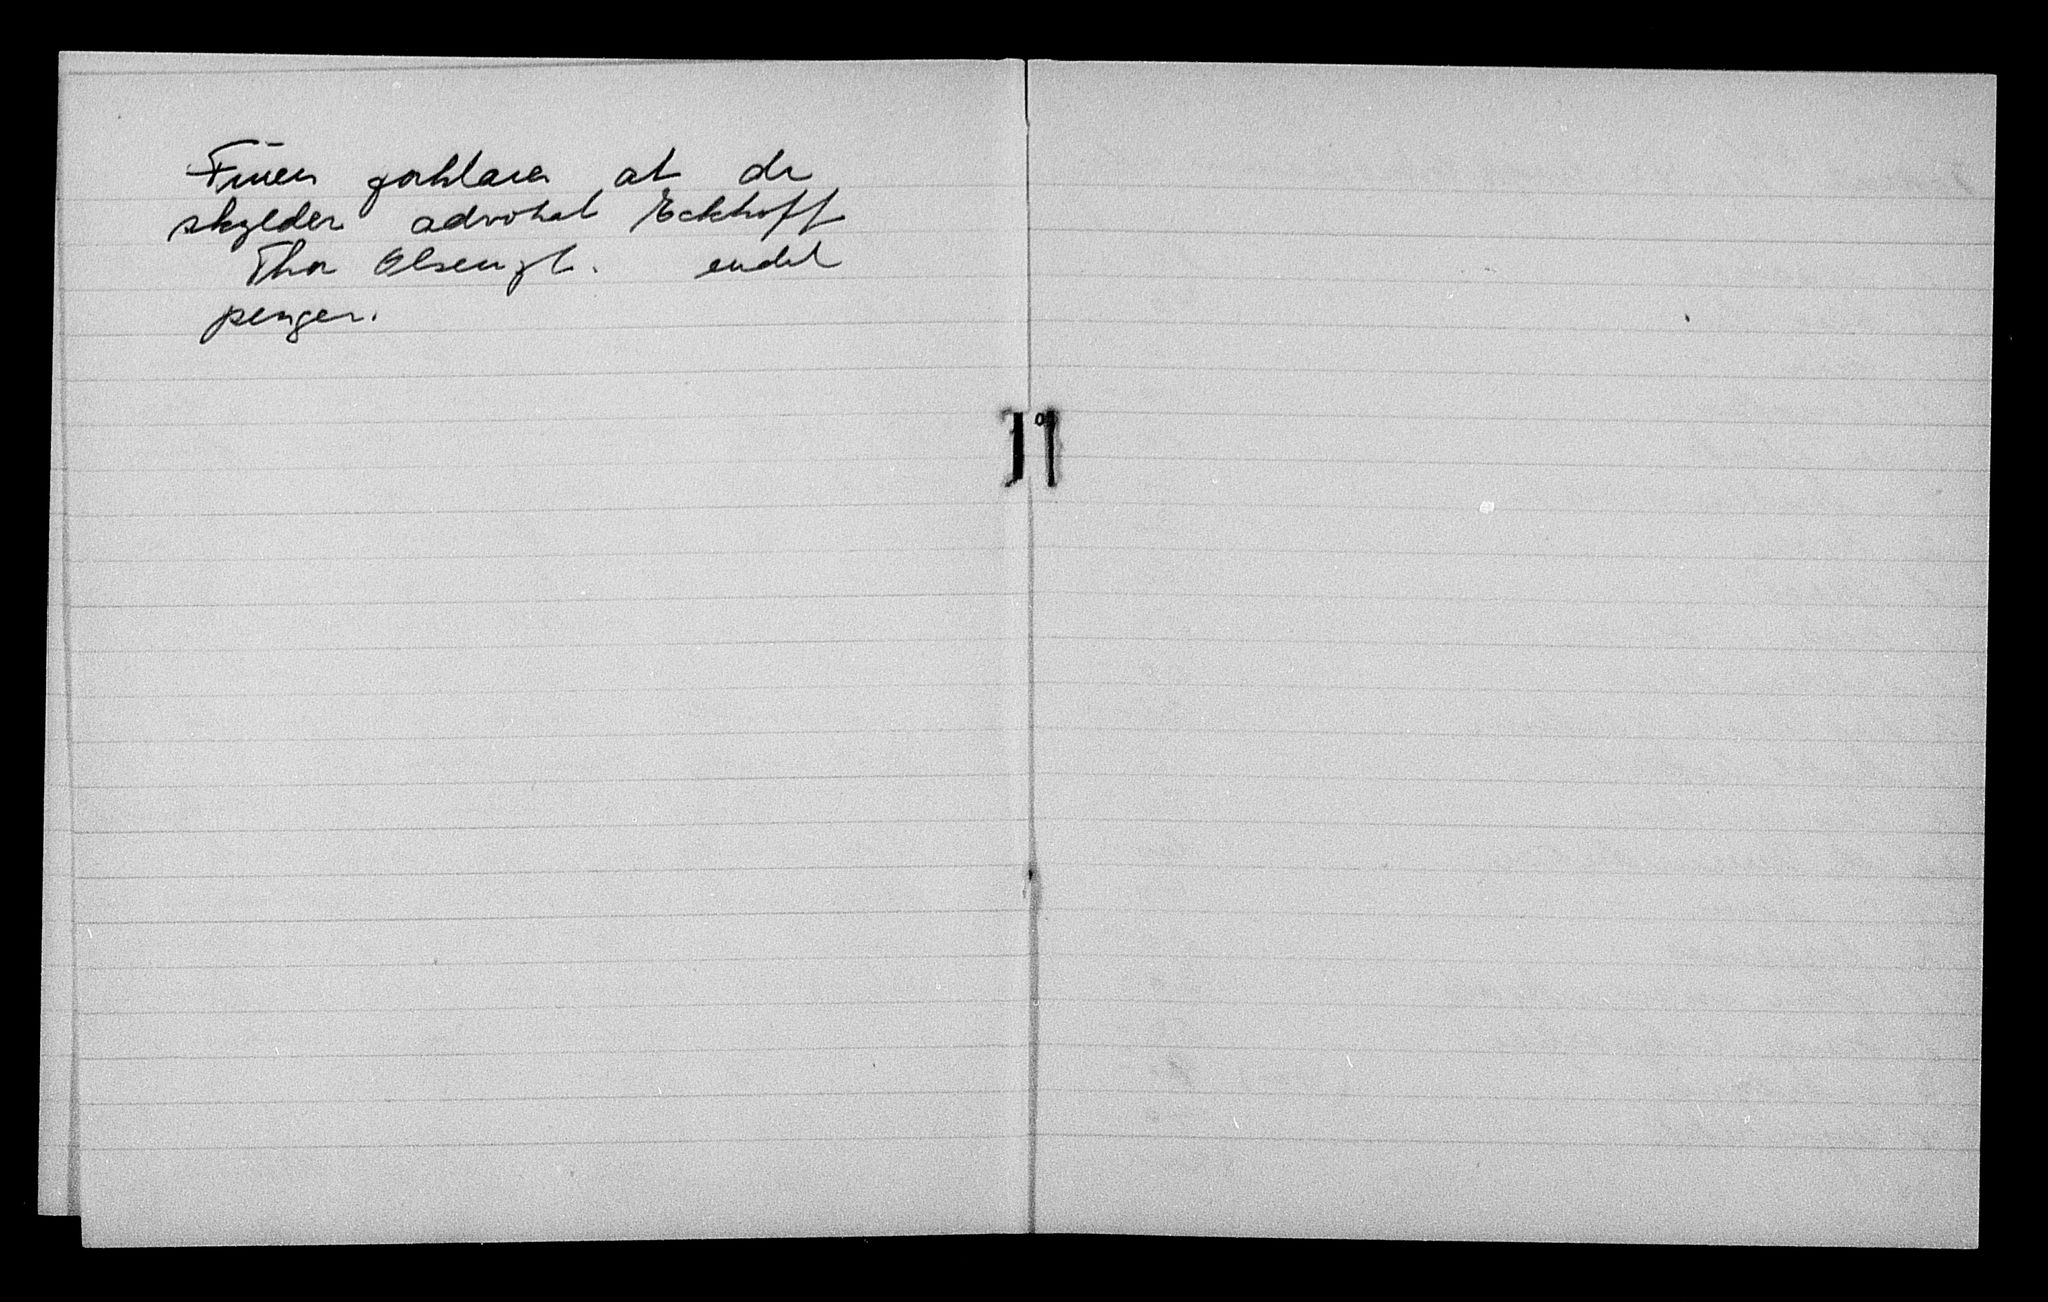 Fruen forklarer at de
skylder advokat Eckhoff
Thor Olsensgt. endel
penger.